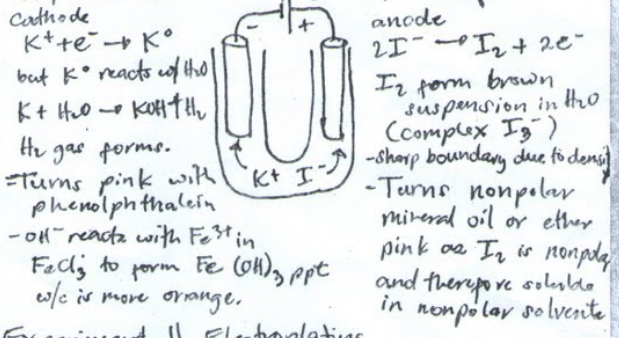 Cathode
K⁺ + e⁻ → K⁰
but K⁰ reacts w/ H₂O
K + H₂O → KOH + H₂
H₂ gas forms.
=Turns pink with
phenolphthalein
- OH⁻ reacts with Fe³⁺ in
FeCl₃ to form Fe(OH)₃ ppt
w/c is more orange.
- +
K+ I⁻
anode
2I⁻ → I₂ + 2e⁻
I₂ form brown
suspension in H₂O
(complex I₃⁻)
-sharp boundary due to densi
-Turns nonpolar
mineral oil or ether
pink as I₂ is nonpola
and therefore soluble
in nonpolar solvents
Experiment 11 Electroplating